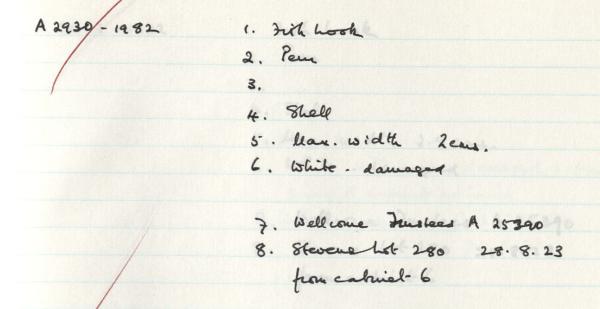 A 2930-1982 1. Fish hook
2. Peru
3.
4. Shell
5. Max. width 2cms.
6. White - damaged
7. Wellcome Trustees A 25390
8. Stevens Lot 280 28.8.23
from cabinet 6